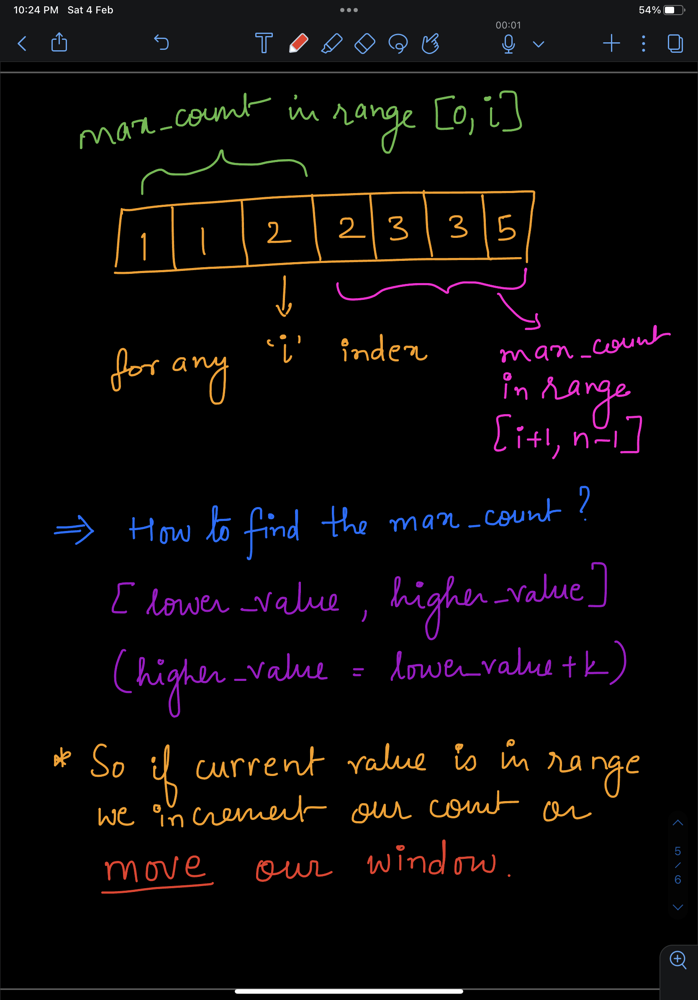 10:24 PM Sat 4 Feb
54%
00:01
T
max_count in range [0, i]
1 1 2 2 3 3 5
for any 'i' index
max_count
in range
[i+1, n-1]
⇒ How to find the max_count?
[lower_value, higher_value]
(higher_value = lower_value + k)
* So if current value is in range
we increment our count or
move our window.
5
/
6